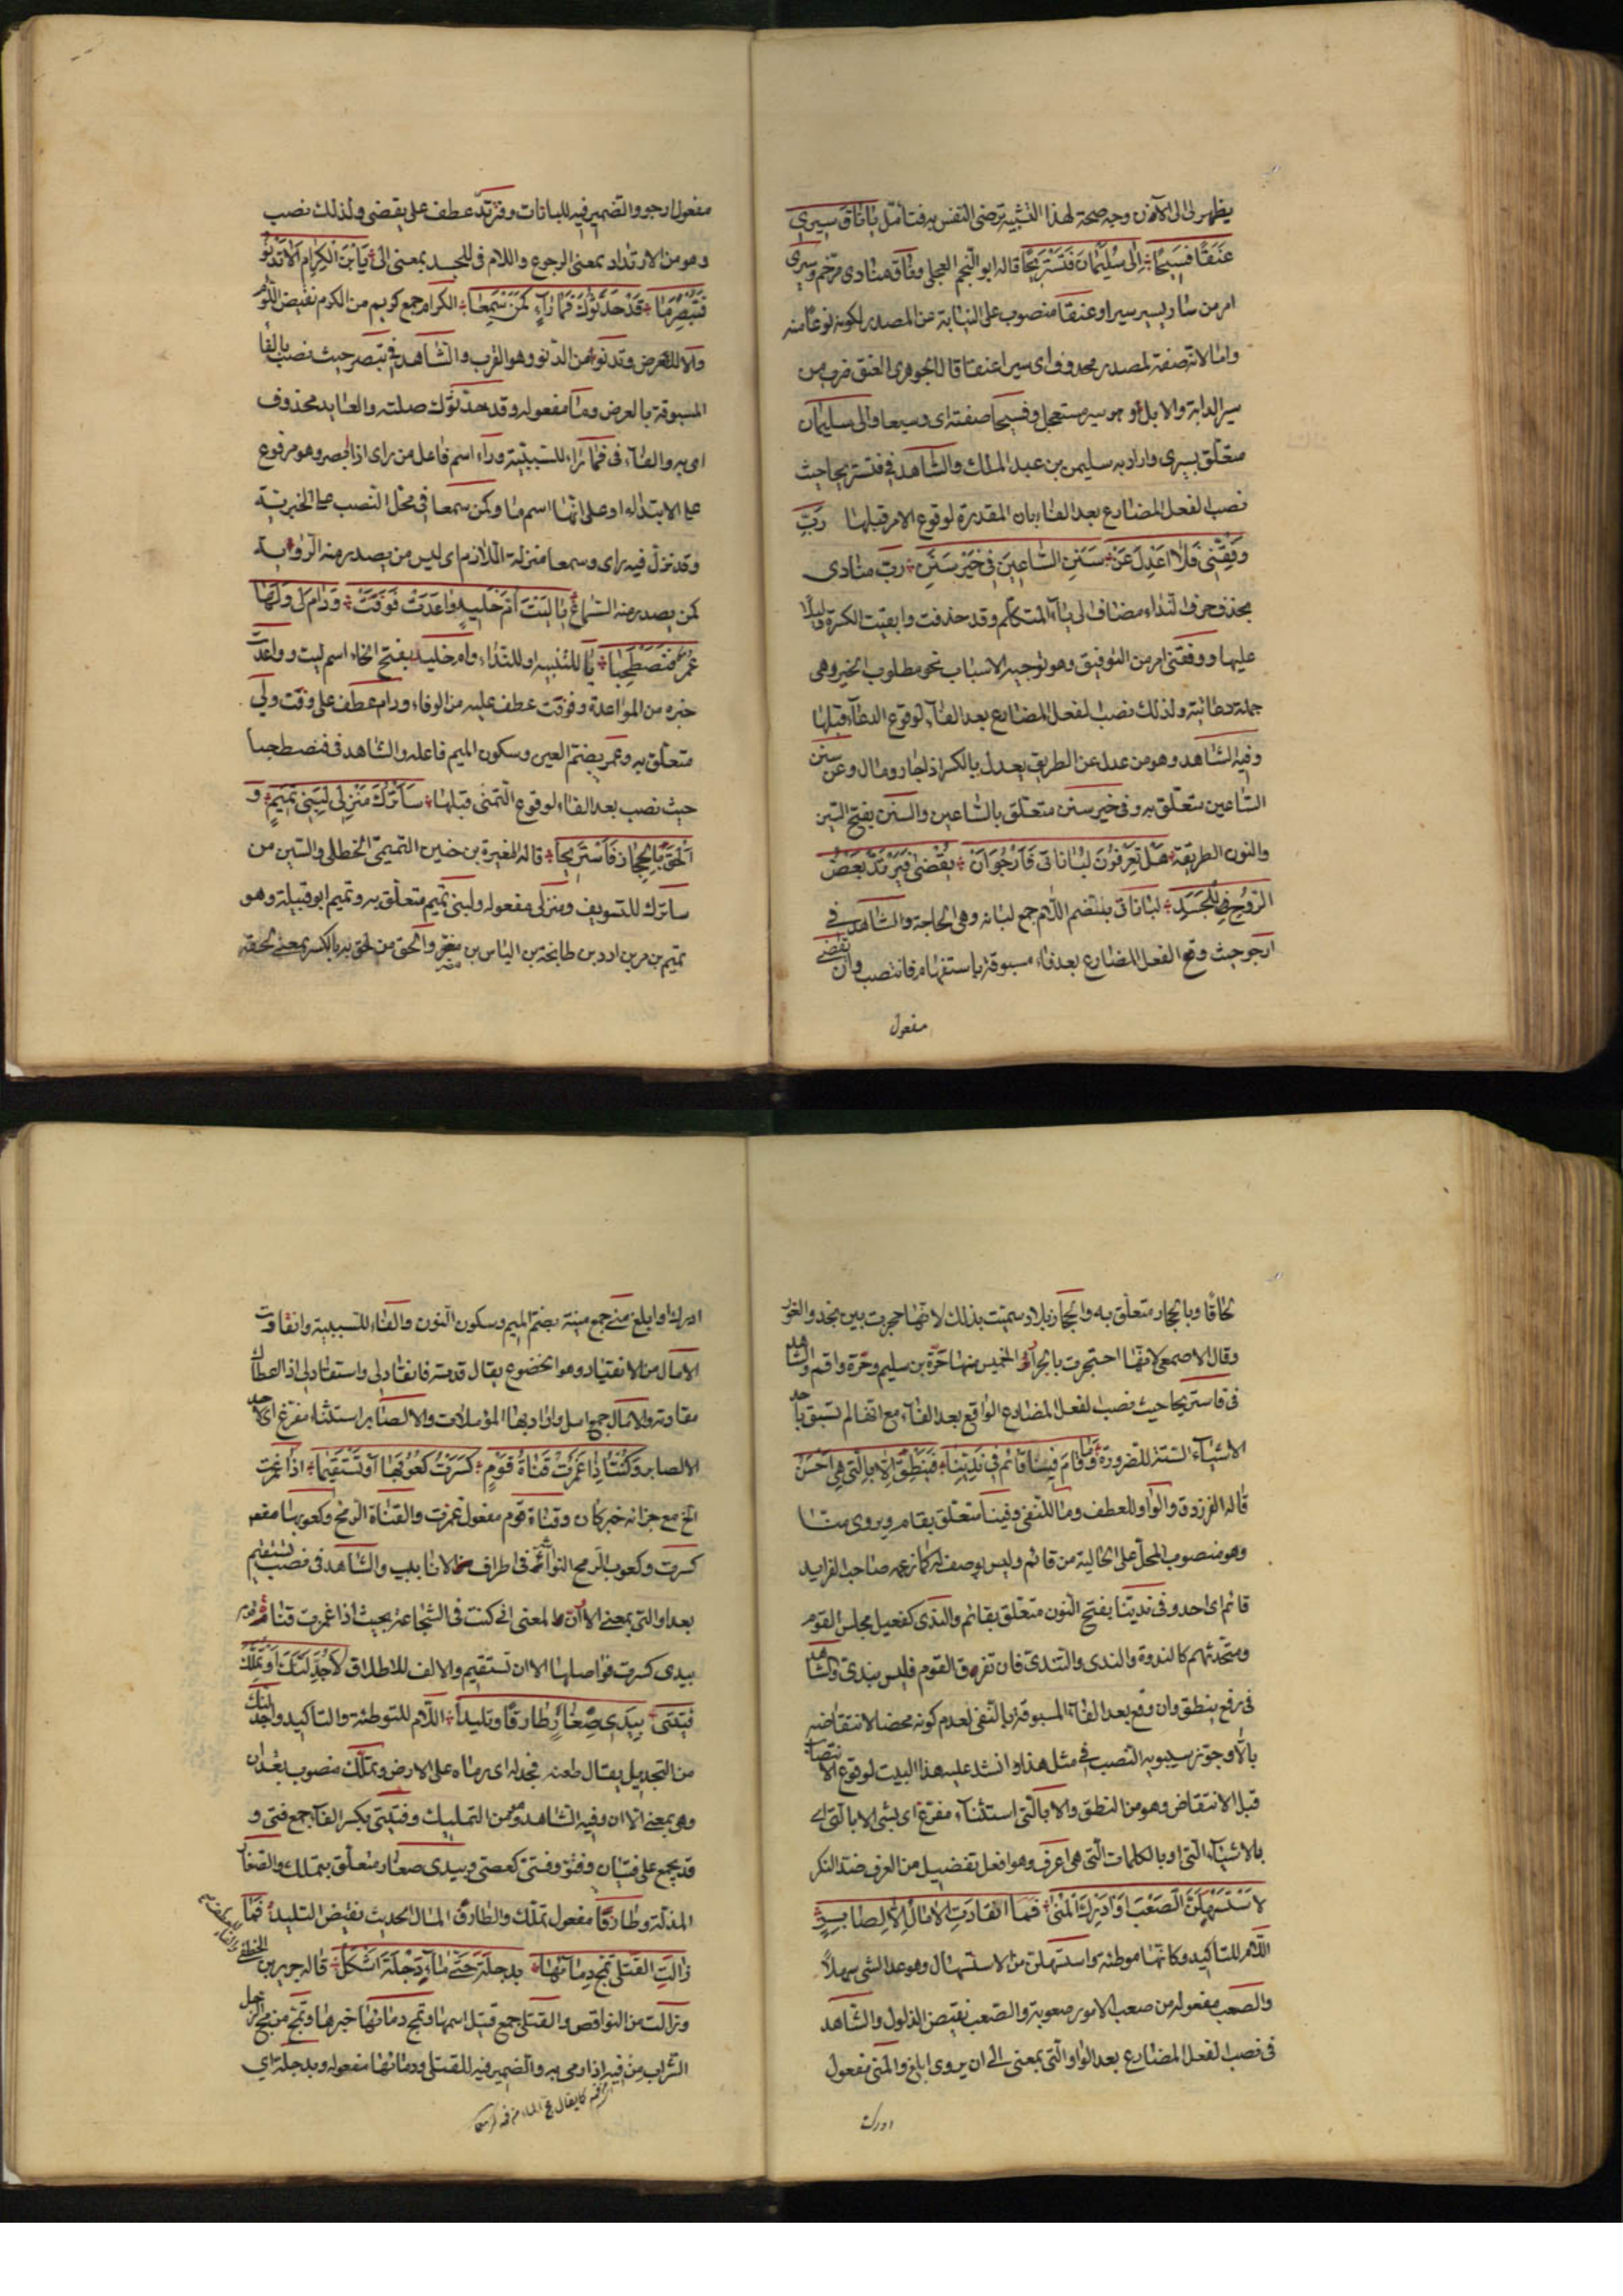 يظهر لى الى الآن وجه صحة لهذا التشبيه ترضى النفس به فتأمل يا ناق سيرى
عنقا فسيحا الى سليمان فنستريحا قاله ابو النجم العجلى وناق منادى مرخم وسيرى
امر من سار يسير سيرا وعنقا منصوب على النيابة عن المصدر لكونه نوعا منه
واما لانه صفة لمصدر محذوف اى سيرا عنقا قال الجوهرى العنق ضرب من
سير الدابة والابل وهو سير مستعجل وفسيحا صفته اى وسيعا والى سليمان
متعلق بسيرى واراد به سليمن بن عبد الملك والشاهد فى فنستريحا حيث
نصب الفعل المضارع بعد الفاء بان المقدرة لوقوع الامر قبلها رب
وفقنى فلا اعدل عن سنن الساعين فى خير سنن رب منادى
بحذف حرف النداء مضاف الى ياء المتكلم وقد حذفت وابقيت الكسرة دليلا
عليها ووفقنى امر من التوفيق وهو توجيه الاسباب نحو مطلوب الخير وهى
جملة دعائية ولذلك نصب الفعل المضارع بعد الفاء لوقوع الدعاء قبلها
وفيه الشاهد وهو من عدل عن الطريق يعدل بالكسر اذا جار ومال وعن سنن
الساعين متعلق به وفى خير سنن متعلق بالساعين والسنن بفتح السين
والنون الطريقة هل تعرفون لباناتى فارجو ان تقضى فيرتد بعض
الروح للجسد لباناتى بضم اللام جمع لبانه وهى الحاجة والشاهد فى
ارجو حيث وقع الفعل المضارع بعد فاء مسبوقة باستفهام فانتصب وان تقضى
مفعول
مفعول ارجو والضمير فيه للبانات وفيرتد عطف على يقضى ولذلك نصب
وهو من الارتداد بمعنى الرجوع واللام فى للجسد بمعنى الى يا بن الكرام الا تدنو
فتبصر ما قد حدثوك فما راء كمن سمعا الكرام جمع كريم من الكرم نقيض اللؤم
والا للعرض وتدنو من الدنو وهو القرب والشاهد فى تبصر حيث نصب بالفا
المسبوقة بالعرض وما مفعوله وقد حدثوك صلته والعايد محذوف
اى به والفاء فى فما راء للسببية وراء اسم فاعل من راى اذا ابصر وهو مرفوع
على الابتداء او على انها اسم ما وكمن سمعا فى محل النصب على الخبرية
وقد نزل فيه راى وسمعا منزلة اللازم اى ليس من يصدر منه الرؤية
كمن يصدر منه السماع يا ليت ام خليد واعدت فوفت ودام لى ولها
عمر فنصطحبا يا للتنبيه او للنداء وام خليد بفتح الخاء اسم ليت وواعدت
خبره من المواعدة وفوفت عطف عليه من الوفاء ودام عطف على وفت ولى
متعلق به وعمر بضم العين وسكون الميم فاعله والشاهد فى فنصطحبا
حيث نصب بعد الفاء لوقوع التمنى قبلها ساترك منزلى لبنى تميم و
الحق بالحجاز فاستريحا قاله المغيرة بن حنين التميمى الحنظلى والسين من
ساترك للتسويف ومنزلى مفعوله ولبنى تميم متعلق به وتميم ابو قبيلة وهو
تميم بن مر بن ادد بن طابخة بن الياس بن مضر والحق من لحق به بالكسر بمعنى لحقه
لحاقا وبالحجاز متعلق به والحجاز بلاد سميت بذلك لانها حجزت بين نجد والغور
وقال الاصمعى لانها احتجزت بالحرار الخمس منها حرة بن سليم وحرة واقم والشاهد
فى فاستريحا حيث نصب الفعل المضارع الواقع بعد الفاء مع انه لم يسبق باحد
الاشياء الستة للضرورة وما قام فينا قائم فى ندينا فينطق الا بالتى هى احسن
قاله الفرزدق والواو للعطف وما للنفى وفينا متعلق بقام ويروى منا
وهو منصوب المحل على الحالية من قائم وليس بوصف له كما زعمه صاحب الفرايد
قائم اى احد وفى ندينا بفتح النون متعلق بقائم والندى كفعيل مجلس القوم
ومتحدثهم كالندوة والندى والتندى فان تفرق القوم فليس بندى والشاهد
فى رفع ينطق وان وقع بعد الفاء المسبوقة بالنفى لعدم كونه محضا لانتقاضه
بالا وجوز سيبويه النصب فى مثل هذا وانشد عليه هذا البيت لوقوع الانتصاب
قبل الانتقاض وهو من النطق والا بالتى استثناء مفرغ اى بشى الا بالتى اى
بالاشياء التى او بالكلمات التى هى اعرف وهو افعل تفضيل من العرف ضد النكر
لاستسهلن الصعب او ادرك المنى فما انقادت الامال الا لصابر
اللام للتاكيد وكانها موطئة واستسهلن من الاستسهال وهو عد الشى سهلا
والصعب مفعوله من صعب الامور صعوبة والصعب نقيض الذلول والشاهد
فى نصب الفعل المضارع بعد الواو التى بمعنى الى ان يروى ابلغ والمنى مفعول
ادرك
ادرك او ابلغ منى جمع منية بضم الميم وسكون النون والفاء للسببية وانقادت
الامال من الانقياد وهو الخضوع يقال قدته فانقاد لى واستقاد لى اذا اعطاك
مقادته والامال جمع امل واراد بها المؤملات والا لصابر استثناء مفرغ اى لاحد
الا لصابر وكنت اذا غمزت قناة قوم كسرت كعوبها او تستقيما اذا غمزت
الخ مع جزائه خبر كان وقناة قوم مفعول غمزت والقناة الرمح وكعوبها مفعو
كسرت وكعوب الرمح النواشز فى اطراف الانابيب والشاهد فى نصب تستقيم
بعد او التى بمعنى الا ان والمعنى انى كنت فى الشجاعة بحيث اذا غمزت قناة قوم
بيدى كسرت فواصلها الا ان تستقيم والالف للاطلاق لاجدلنك او تملك
فتيتى بيدى صغار طارقا وتليدا اللام للتوطئة والتاكيد واجدلنك
من التجديل يقال طعنه فجدله اى رماه على الارض وتملك منصوب بعد ان
وهى بمعنى الا ان وفيه الشاهد وهو من التمليك وفتيتى بكسر الفاء جمع فتى و
قد يجمع على فتيان وفتو وفتى كعصى وبيدى صغار متعلق بتملك والصغار
المذلة وطارقا مفعول تملك والطارق المال الحديث نقيض التليد فما
زالت القتلى تمج دماءها بدجلة حتى ماء دجلة اشكل قاله جرير بن الخطفى
وزالت من النواقص والقتلى جمع قتيل اسمها وتمج دمائها خبرها وتمج من مج الرجل
الشراب من فيه اذا رمى به والضمير فيه للقتلى ودمائها مفعوله وبدجلة اى